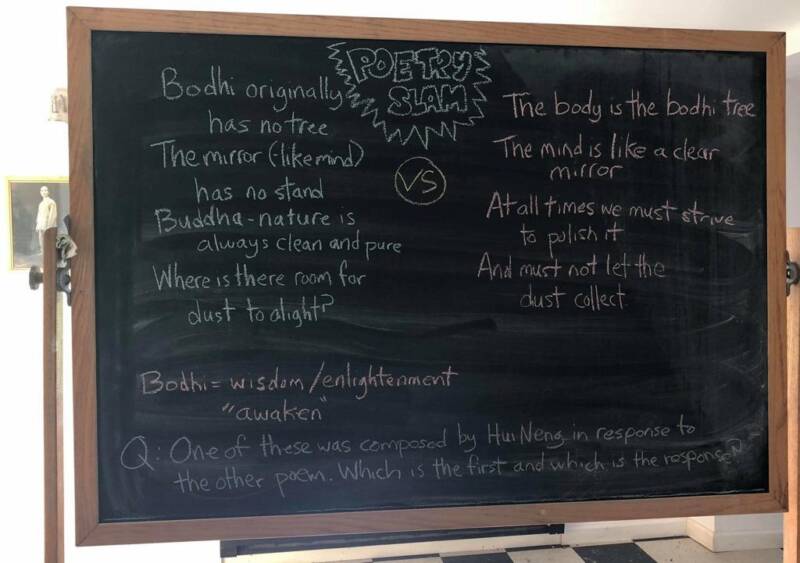 POETRY
SLAM
Bodhi originally
has no tree
The mirror (-like mind)
has no stand
Buddha-nature is
always clean and pure
Where is there room for
dust to alight?
VS
The body is the bodhi tree
The mind is like a clear
mirror
At all times we must strive
to polish it
And must not let the
dust collect
Bodhi = wisdom/enlightenment
"awaken"
Q: One of these was composed by Hui Neng in response to
the other poem. Which is the first and which is the response?